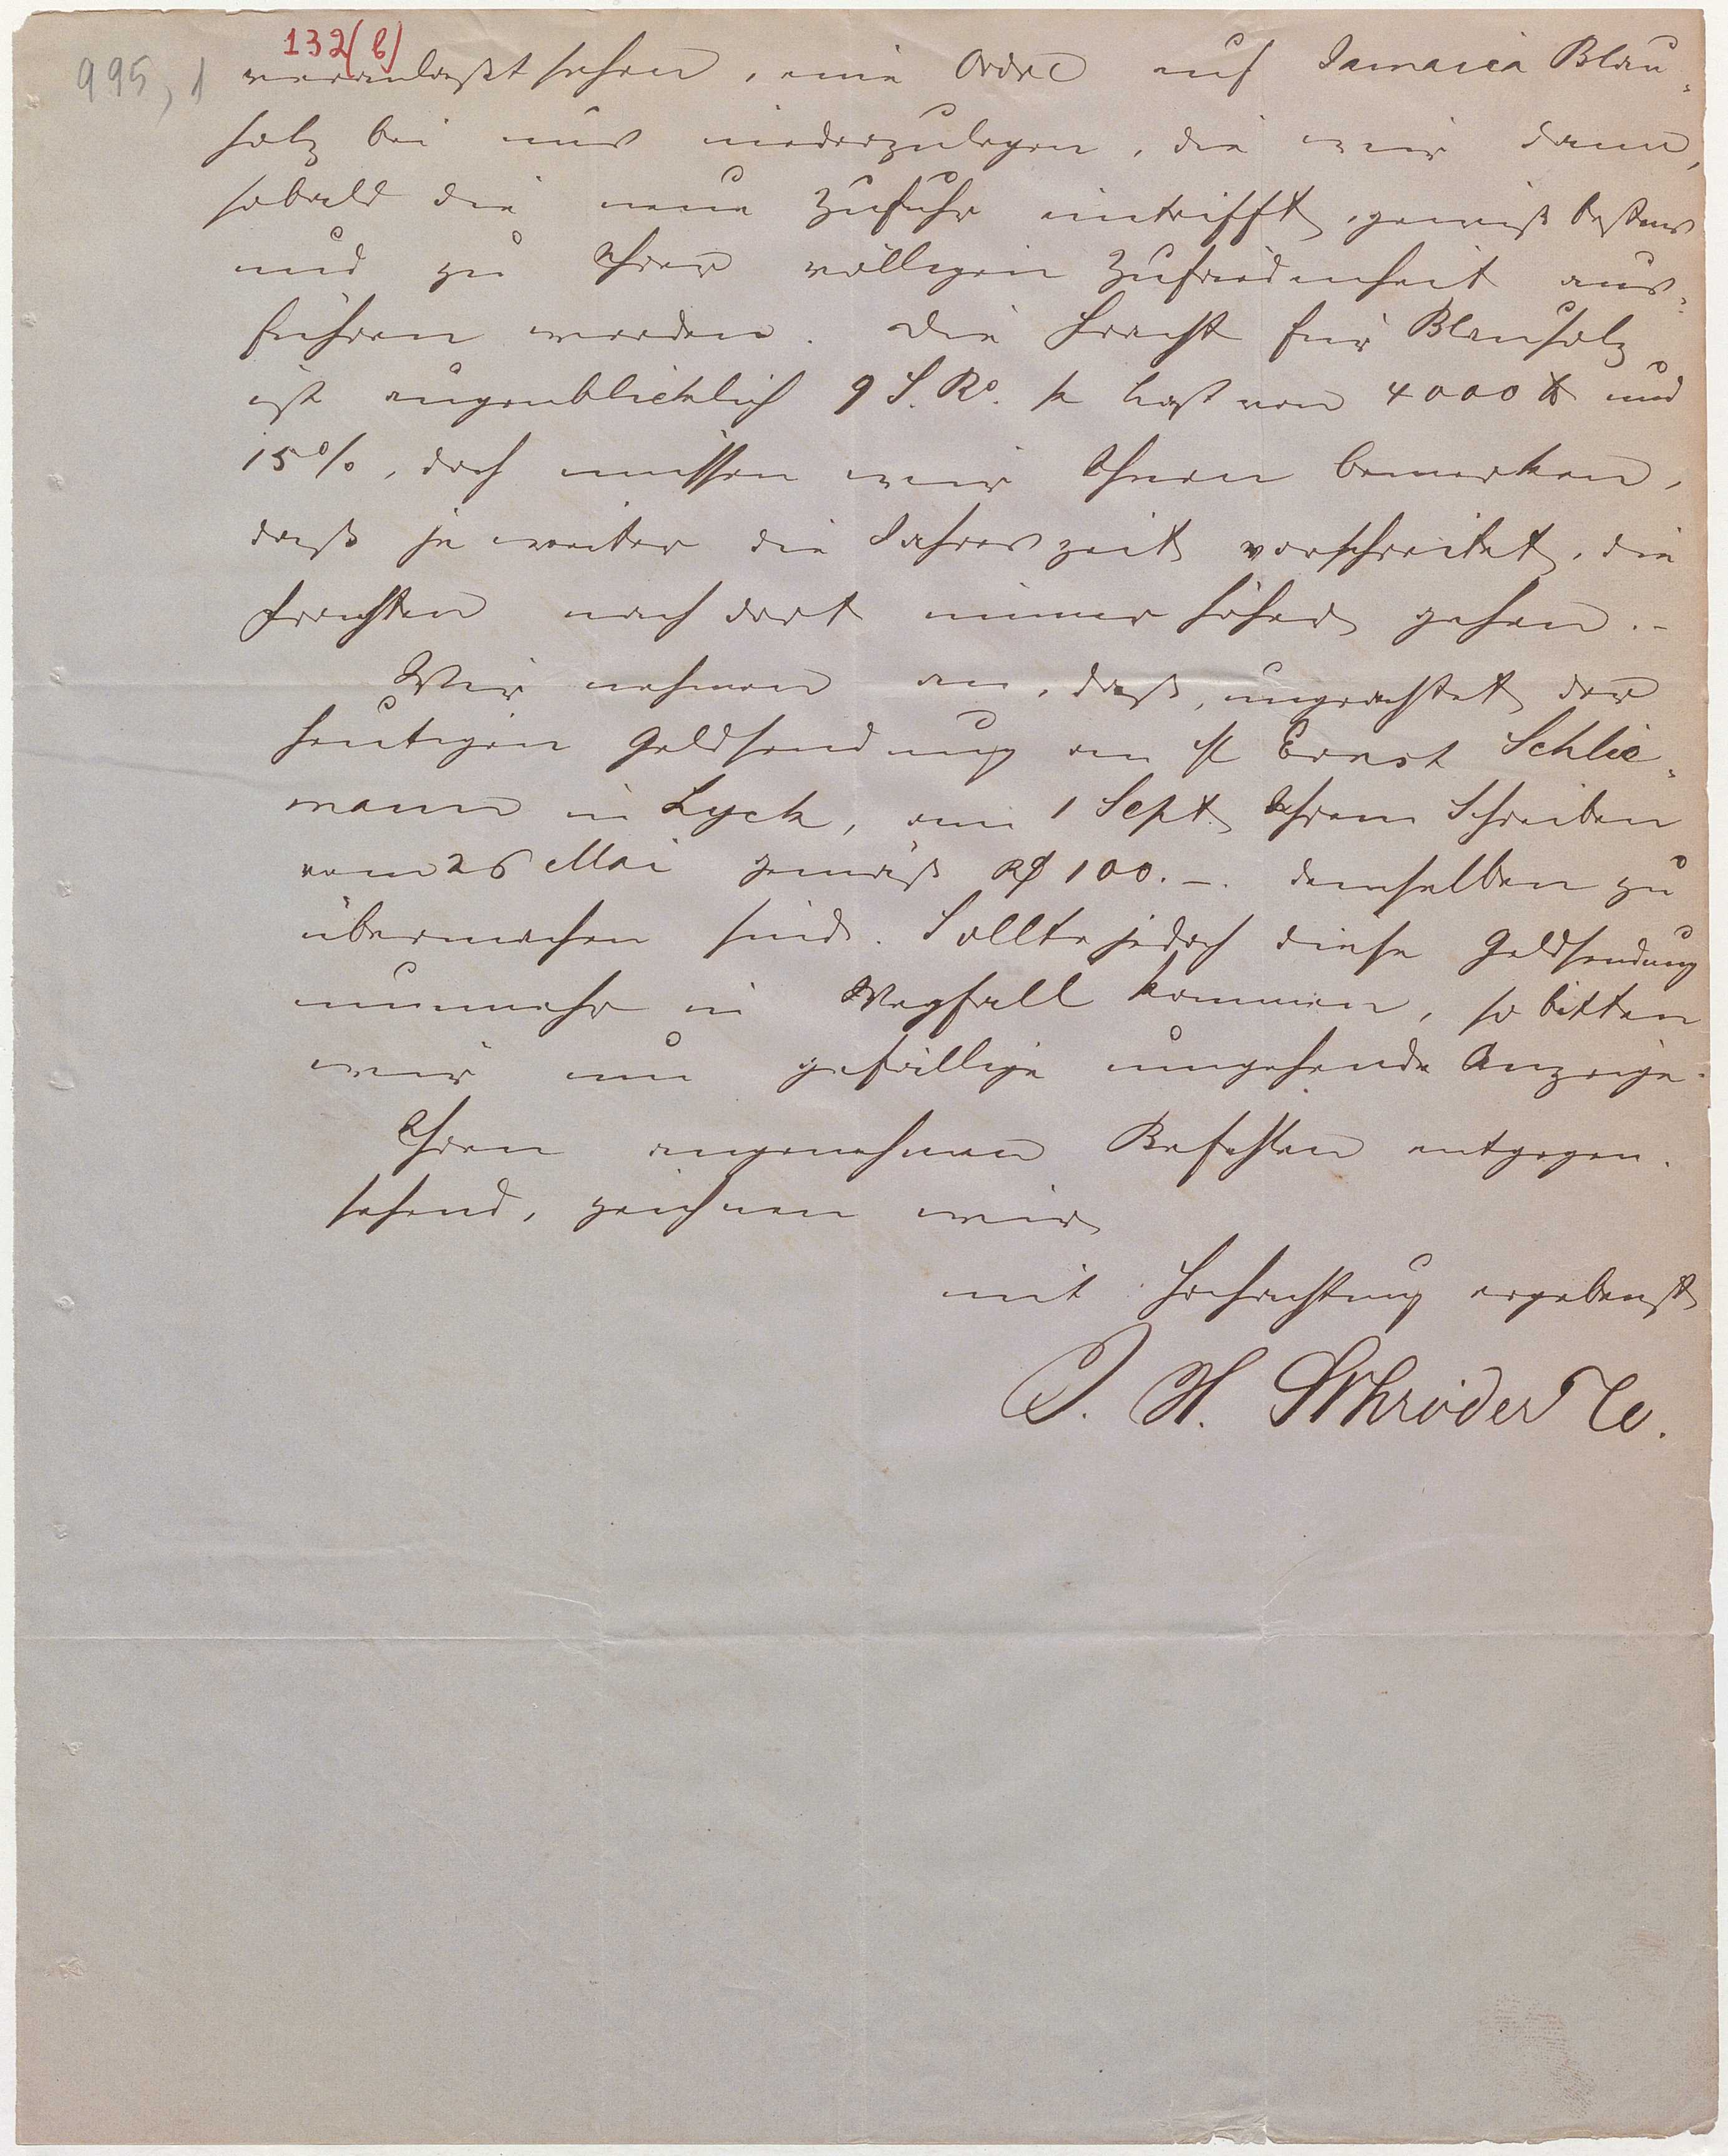 132(b)
995, 1
veranlaßt sehen, eine Ordre auf Jamaica Blau-
holz bei uns niederzulegen, die wir dann,
sobald die neue Zufuhr eintrifft, gewiß bestens
und zu Ihrer völligen Zufriedenheit aus-
führen werden. Die Fracht für Blauholz
ist augenblicklich 9 S. Ro. p Last von 4000 ℔ und
15%, doch müssen wir Ihnen bemerken,
daß je weiter die Jahreszeit vorschreitet, die
Frachten nach dort immer höher gehen.-
Wir nehmen an, daß, ungeachtet der
heutigen Geldsendung an H Ernst Schlie-
mann in Lyck, am 1 Sept. Ihrem Schreiben
vom 26 Mai gemäß 100.-. demselben zu
übermachen sind. Sollte jedoch diese Geldsendung
nunmehr in Wegfall kommen, so bitten
wir um gefällige umgehende Anzeige.
Ihren angenehmen Befehlen entgegen-
sehend, zeichnen wir
mit Hochachtung ergebenst
J. H. Schröder Co.